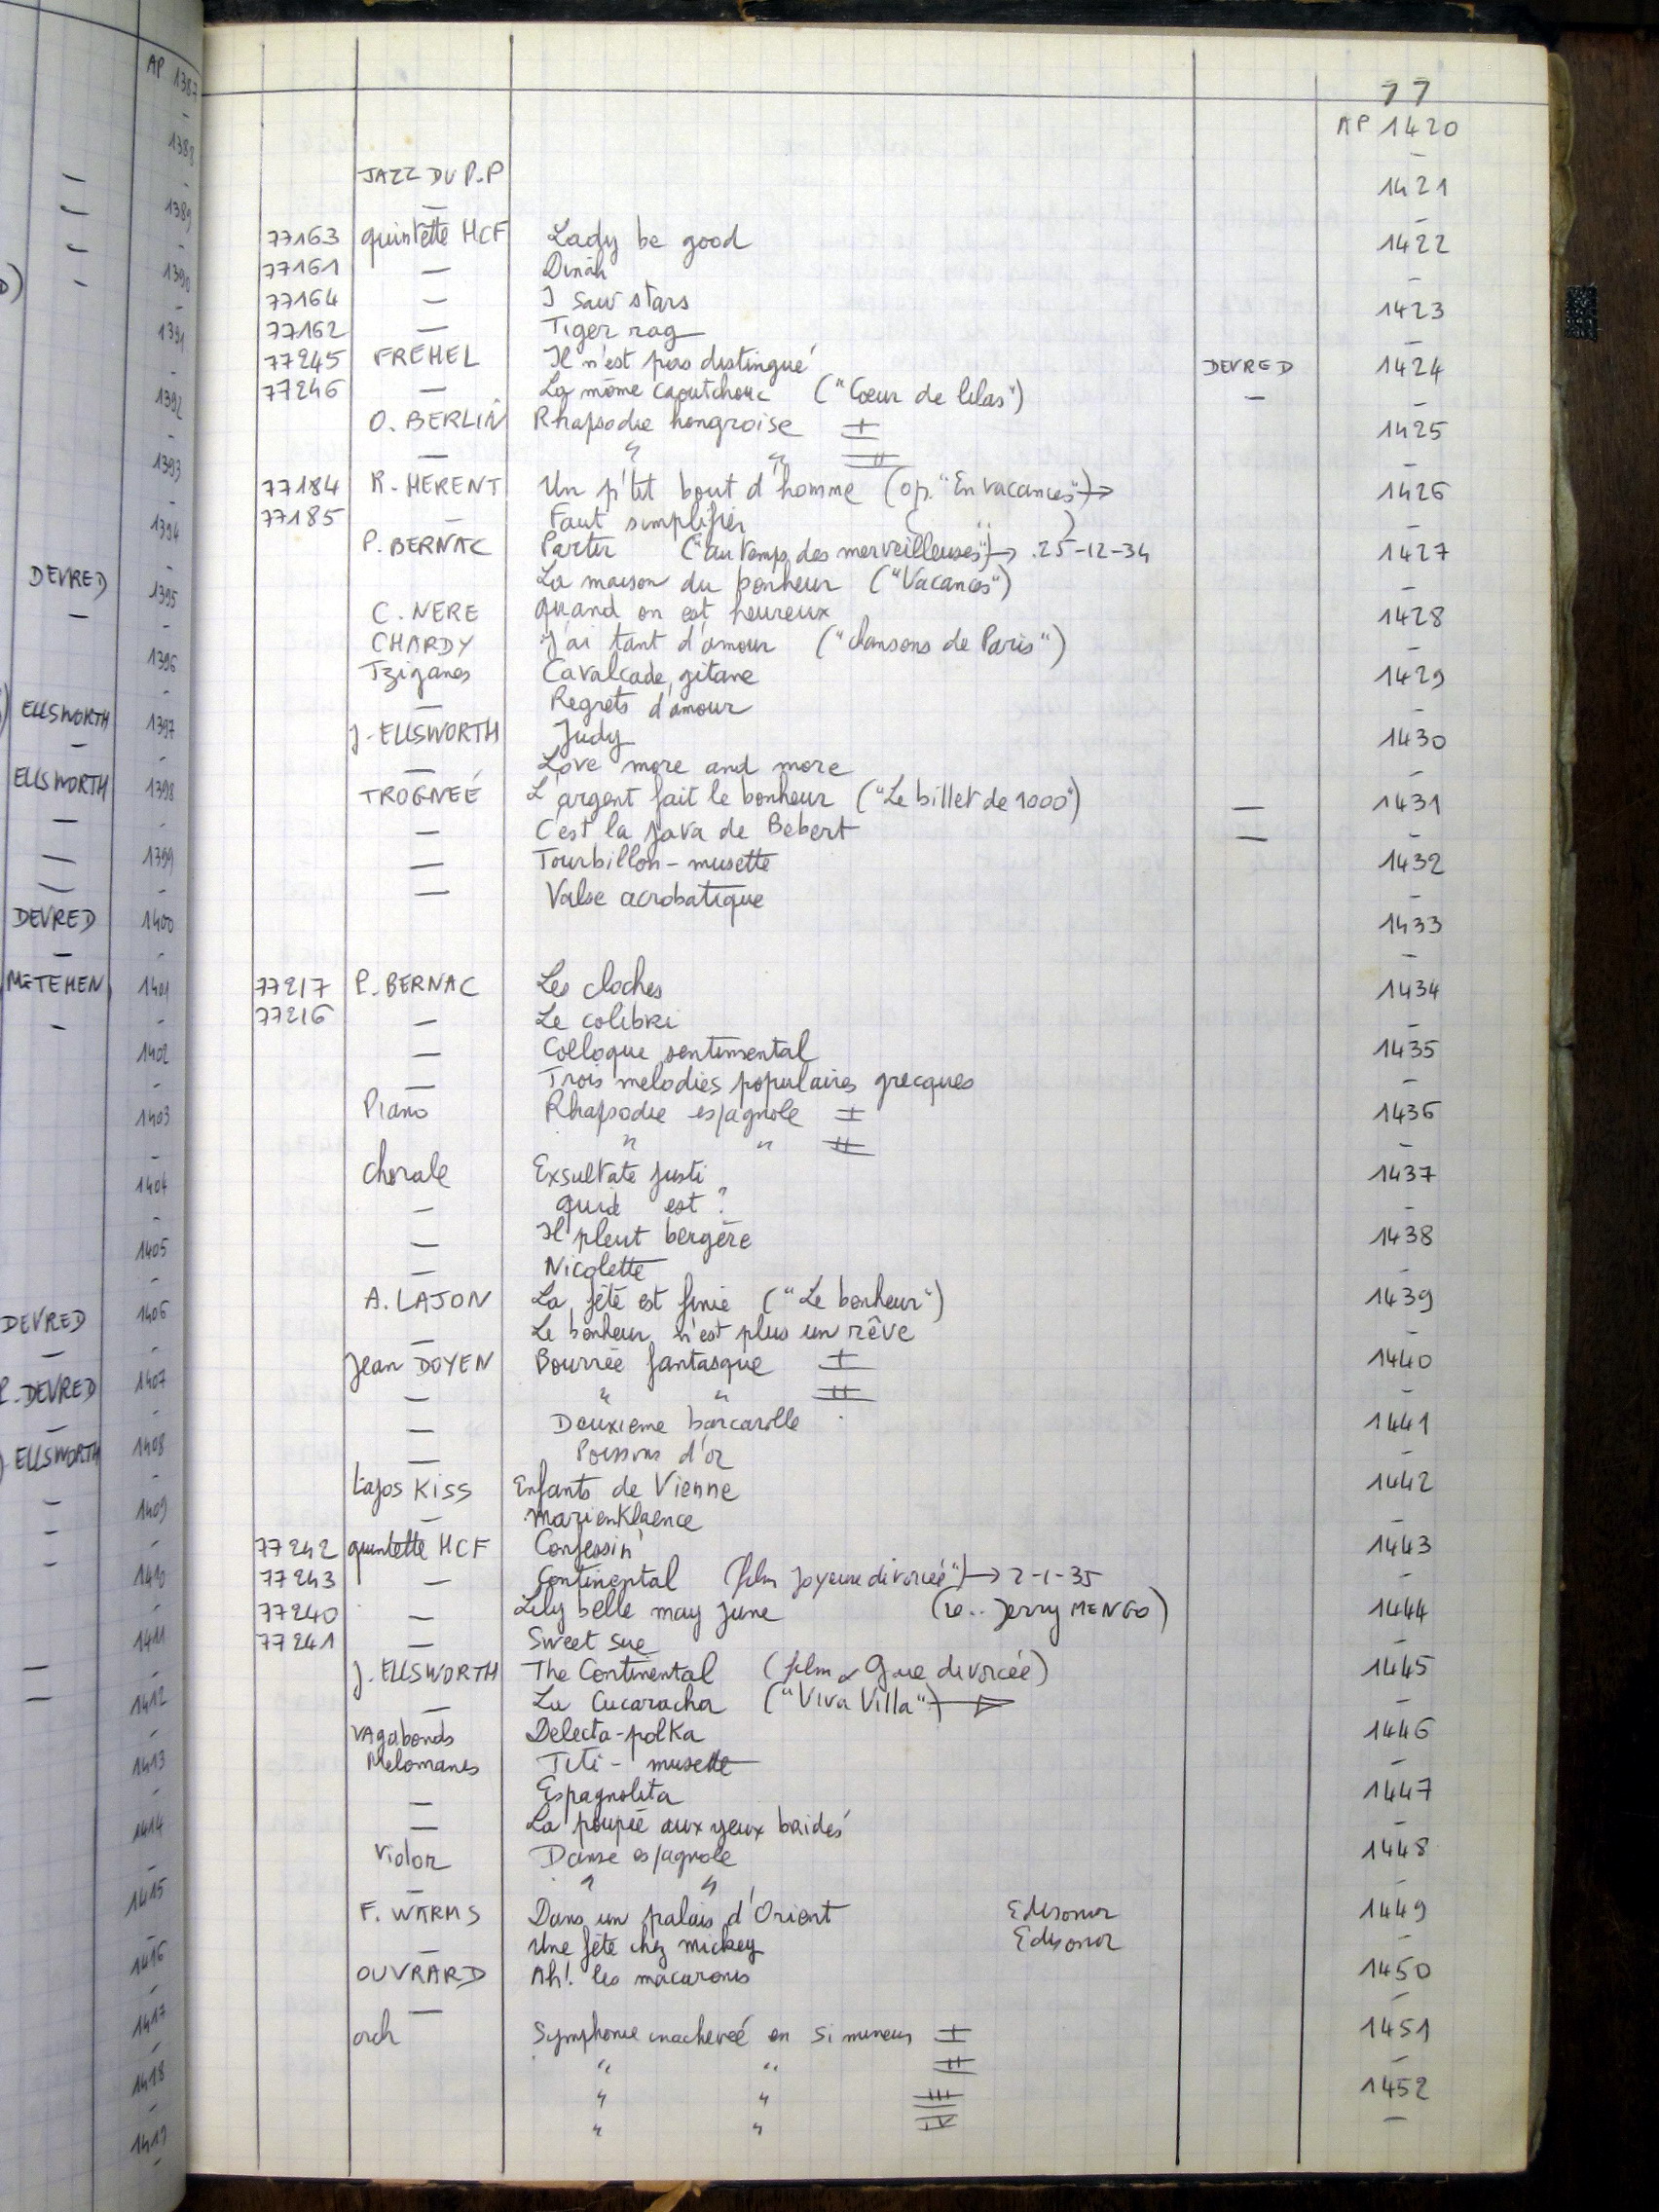 AP 1387
-
1388
-
1389
-
1390
-
1391
-
1392
-
1393
-
1394
DEVRED -
- 1395
-
1396
-
ELLSWORTH 1397
- -
ELLSWORTH 1398
- -
- 1399
- -
DEVRED 1400
- -
METEHEN 1401
- -
1402
-
1403
-
1404
-
1405
-
DEVRED 1406
- -
P. DEVRED 1407
- -
ELLSWORTH 1408
-
- 1409
- -
- 1410
-
1411
- -
- 1412
-
1413
-
1414
-
1415
-
1416
-
1417
-
1418
-
1419
-
77
AP 1420
-
JAZZ DU P.P 1421
- -
77163 quintette HCF Lady be good 1422
77161 - Dinah -
77164 - I saw stars 1423
77162 - Tiger rag -
77245 FREHEL Il n'est pas distingué DEVRED 1424
77246 - La môme caoutchouc ("Cœur de lilas") - -
O. BERLIN Rhapsodie hongroise I 1425
- " " II -
77184 R. HERENT Un p'tit bout d'homme (op. "En vacances") → 1426
77185 - Faut simplifier ( " ) -
P. BERNAC Partir ("au temps des merveilleuses") → 25-12-34 1427
La maison du bonheur ("Vacances") -
C. NERE quand on est heureux 1428
CHARDY J'ai tant d'amour ("chansons de Paris") -
Tziganes Cavalcade gitane 1429
- Regrets d'amour -
J. ELLSWORTH Judy 1430
- Love more and more -
TROGNEÉ L'argent fait le bonheur ("Le billet de 1000") - 1431
- C'est la java de Bebert - -
- Tourbillon-musette 1432
- Valse acrobatique -
1433
-
77217 P. BERNAC Les cloches 1434
77216 - Le colibri -
- Colloque sentimental 1435
- Trois melodies populaires grecques -
Piano Rhapsodie espagnole I 1436
" " II -
chorale Exsultate justi 1437
- quid est ? -
- Il pleut bergère 1438
- Nicolette -
A. LAJON La fête est finie ("Le bonheur") 1439
- Le bonheur n'est plus un rêve -
Jean DOYEN Bourrée fantasque I 1440
- " " II -
- Deuxieme barcarolle 1441
- Poissons d'or -
Lajos KISS Enfants de Vienne 1442
- Marienklaence -
77242 quintette HCF Confessin' 1443
77243 - Continental (film Joyeuse divorcée") → 2-1-35 -
77240 - Lily belle may june (re.. Jerry MENGO) 1444
77241 - Sweet sue -
J. ELLSWORTH The Continental (film Gaie divorcée) 1445
- La Cucaracha ("Viva Villa") → -
Vagabonds Delecta-polka 1446
Melomanes Titi - musette -
- Espagnolita 1447
- La poupée aux yeux bridés -
Violon Danse espagnole 1448
- " " -
F. WARMS Dans un palais d'Orient Edisonor 1449
- Une fête chez mickey Edisonor -
OUVRARD Ah! les macaronis 1450
- -
orch Symphonie inacheveé en si mineur I 1451
" " II -
" " III 1452
" " IV -